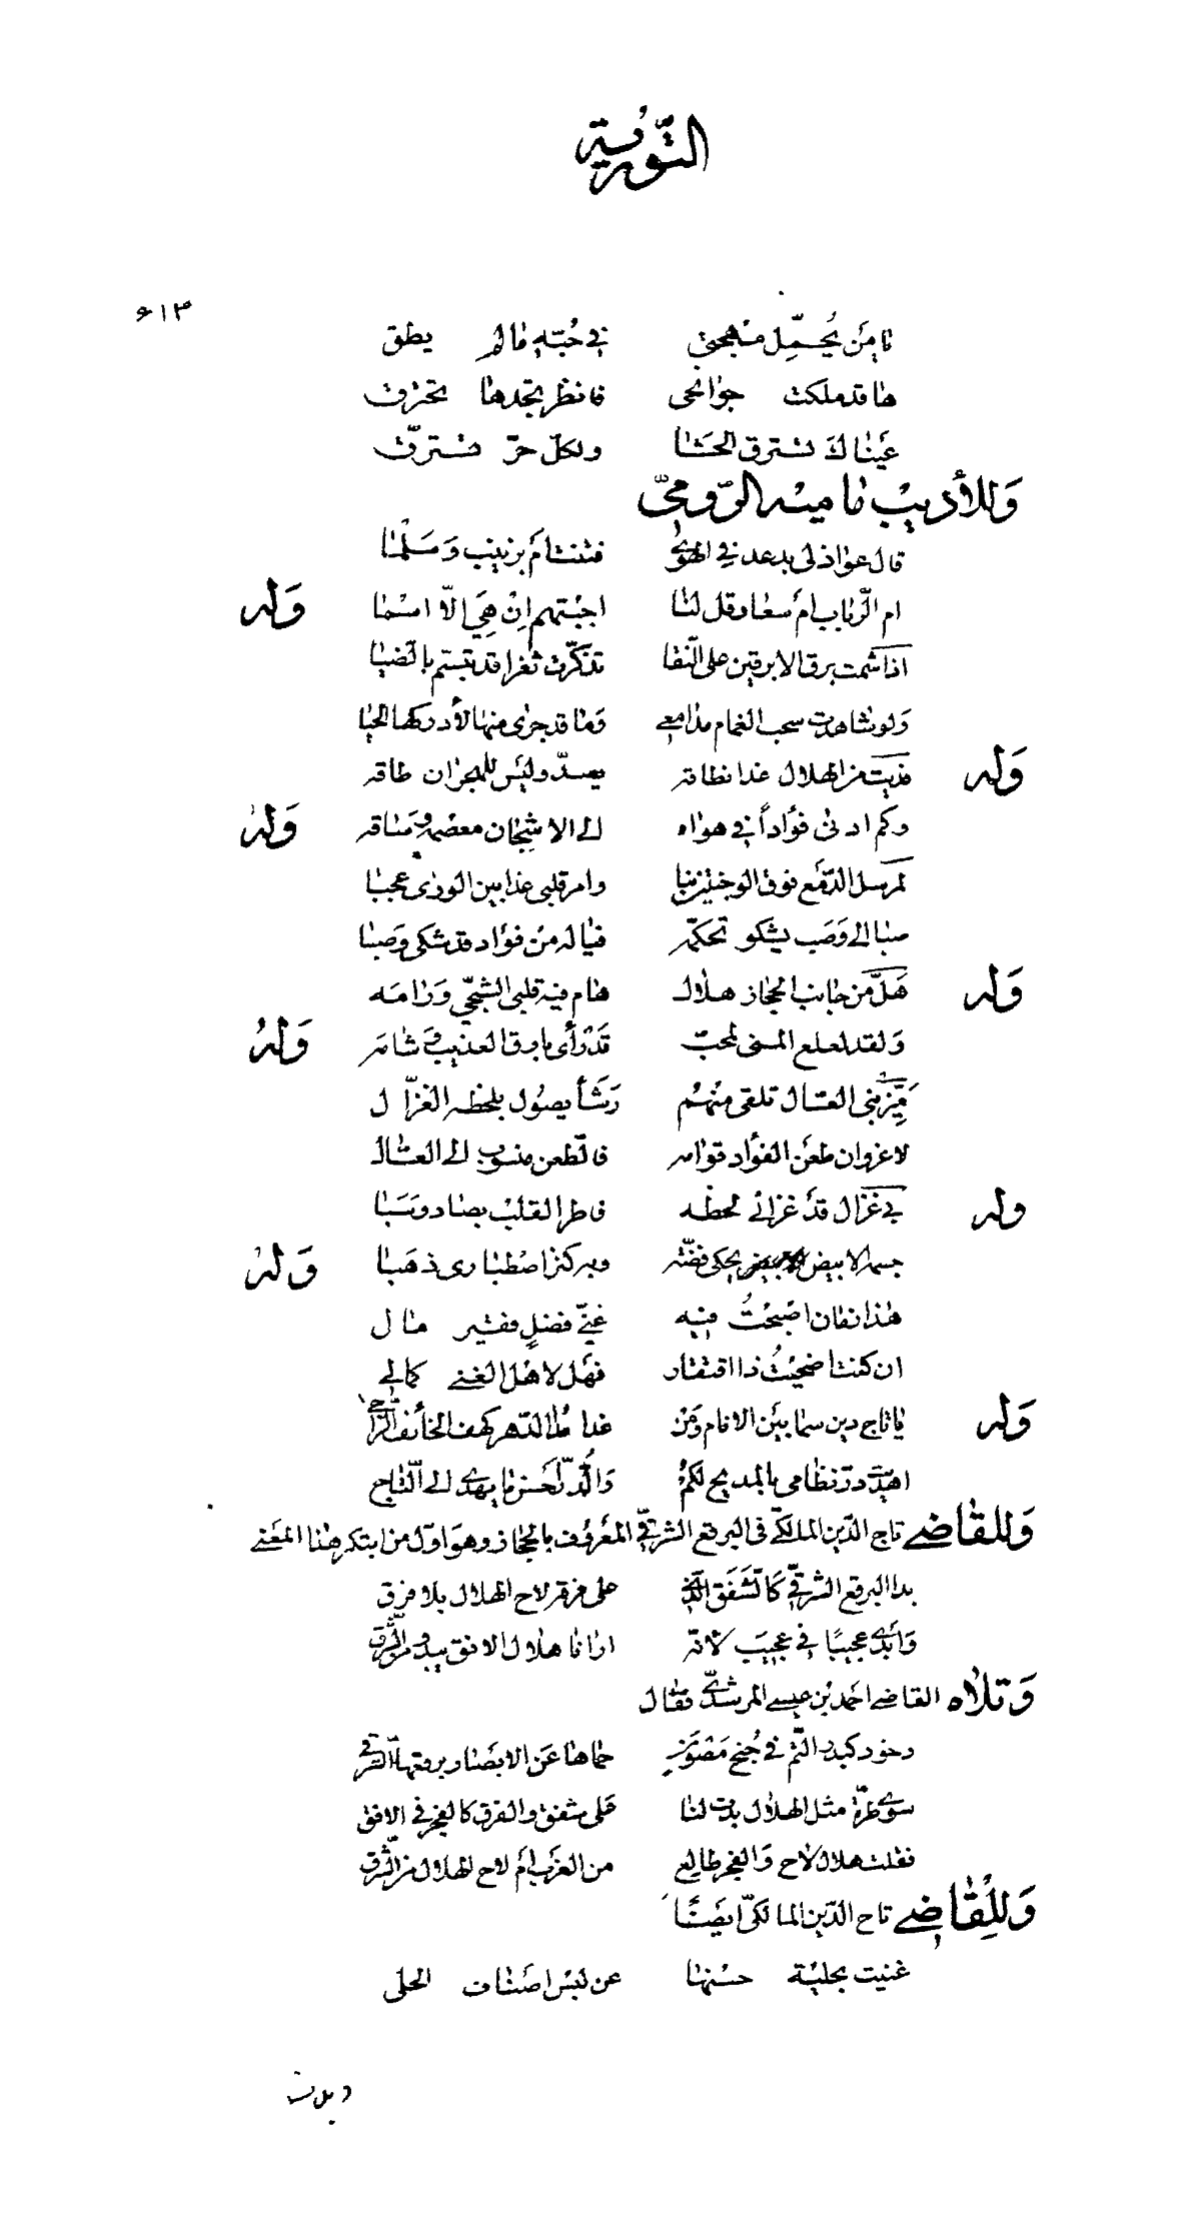 التّورية
٤١٣
يا من يُحمّل مهجتي في حُبّه ما لم يطق
ها قد ملكت جوانحي فانظر تجدها تحترق
عَيناكَ تسترق الحشا ولكلّ حرّ تسترقّ
وَللأديب ماميه الرّوميّ
قال عواذلي بدعد في الهوى فتنت أم بزينب وَسَلمٰى
ام الرّباب أم سعاد قل لنا اجبتهم إنْ هِيَ الّا اسْما وَله
اذا شمت برق الابرقين على النّقا تذكّرت ثغرا قد تبسّم بالضيا
وَلو شاهدت سحب الغمام مدامعي وَما قد جرى منها لأدركها الحيا
وَله فديت من الهلال غدا نطاقه يصدّ وليس للهجران طاقه
وكم ادنى فؤاداً في هواه الى الاشجان معضم وساقه وَلهُ
لمرسل الدّمع فوق الوجنتين نبا وامر قلبي غدا بين الورى عجبا
صبا الى وَصَب يشكو تحكّمه فيا له من فؤاد قد شكى وَصبا
وَله هَلّ من جانب الحجاز هلال هام فيه قلبي الشجيّ وَرامَه
وَلقد لعلع المنى لمحبّ قَدْ رأى بارق العذيب وَشامَه وَلهُ
عيّزبني العسّال تلقى منهُم رَشَأ يصُول بلحظه الغزّال
لا غرو ان طعَن الفؤاد قوامه فالطّعن منسوب الى العسّال
وله بي غزال قدْ غزاني لحظه فاطر القلبْ بصاد وَسَبا
جسمه الابيض يحكي فضّة وبه كنز اصْطباري ذهَبا وَلهُ
هٰذا زمان اصْبحْتُ فيه غنيّ فضلٍ فقير مال
ان كنت اضحيْتُ ذا افتقار فهَل لاهْل الغنى كمالي
وَله يا تاج دين سما بيْن الانام وَمن غدا مدا الدّهر كهف الخائف الرّاجي
اهديت درّ نظامي بالمديح لكمُ وَالدُّرّ أحسَن ما يهدى الى التّاج
وَللقاضي تاج الدّين المالكيّ في البرقع الشرقيّ المعْروف بالحجاز وهوَ اوّل من ابتكر هٰذا المعْنى
بدا البرقع الشرقيّ كالشَفَق الّذي على فرقه لاح الهلال بلا فرق
وَابْدى عجيبًا في عجيبَ لانّه ارانا هلال الافق يبدو من الشّرق
وَتلاه القاضي احمد بْن عيسى المرشديّ فقال
وخود كبدر التّم في جُنح مَصْوَنٍ حماها عَن الابْصار برقعها الشّرقي
سوى طرّة مثل الهلال بدت لنا عَلى شفق والفرق كالفجر في الافق
فقلت هلال لاح وَالفجر طالع من الغرْب أم لاح الهلال من الشّرق
وَللِقاضي تاج الدّين المالكيّ ايضًا
غنيت بحليْة حسْنها عن لبْس اصْناف الحلى
وبدت